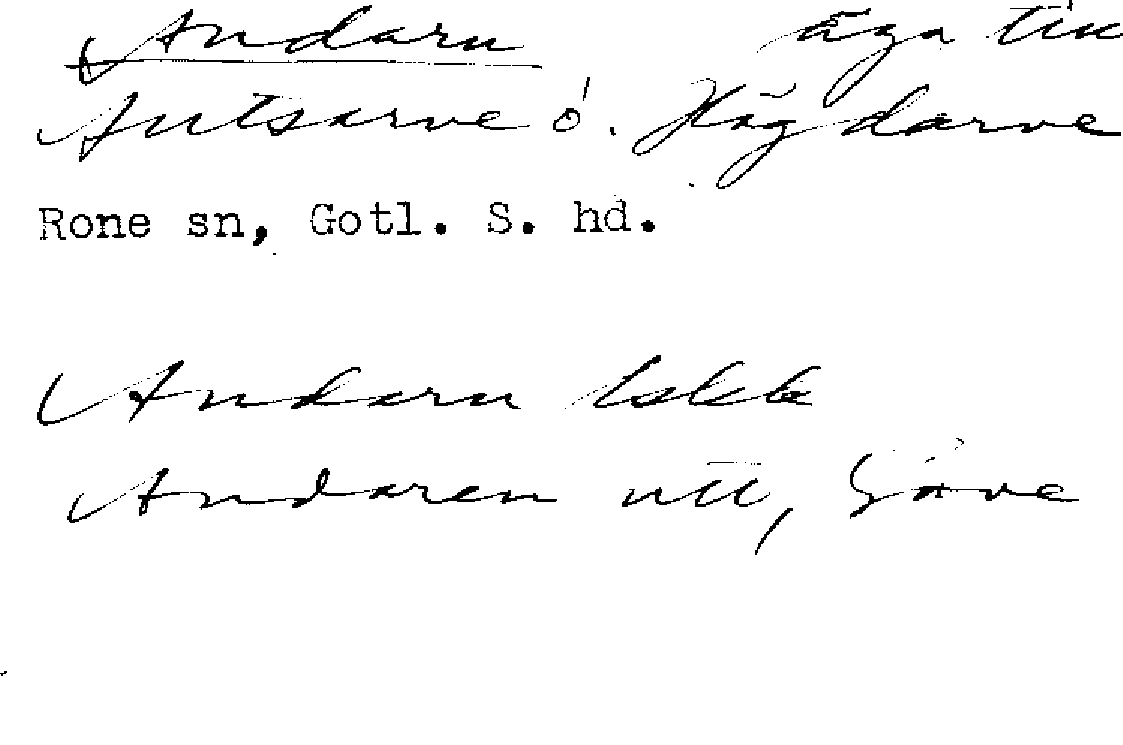 Andarn äga till
Autsarve o. Hägdarve
Rone sn, Gotl. S. hd.
Andarn
Andaren utt,